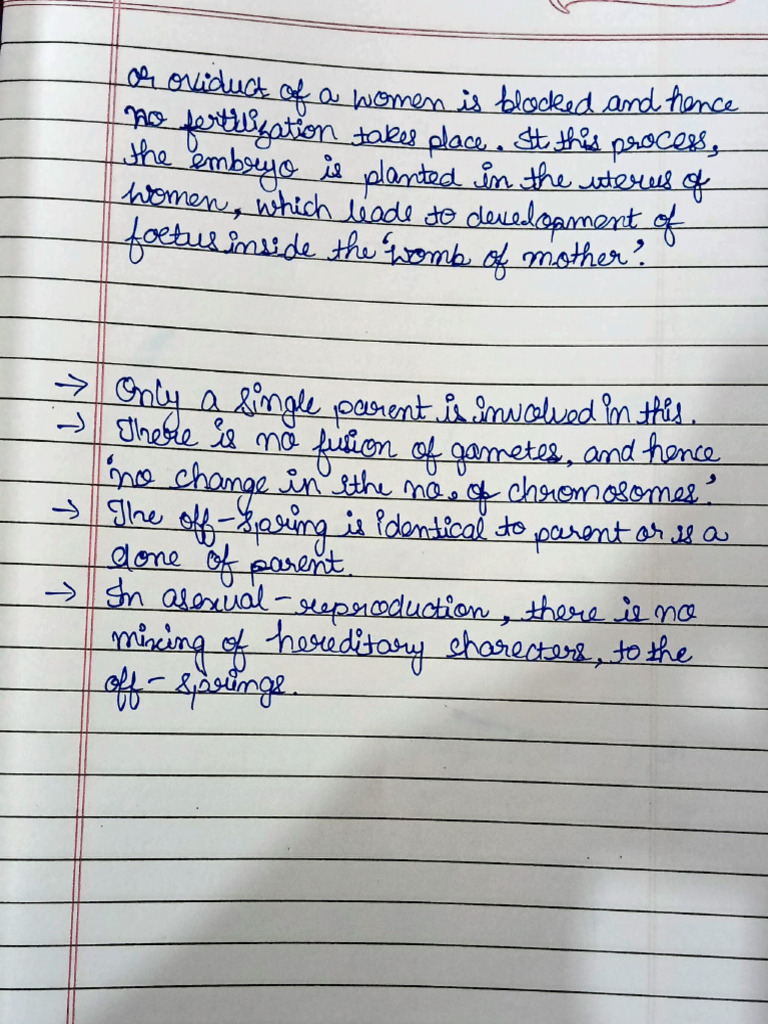 or oviduct of a women is blocked and hence
no fertilization takes place. It this process,
the embryo is planted in the uterus of
women, which leads to development of
foetus inside the 'womb of mother'.
→ Only a single parent is involved in this.
→ There is no fusion of gametes, and hence
'no change in the no. of chromosomes'.
→ The off-spring is identical to parent or is a
clone of parent.
→ In asexual-reproduction, there is no
mixing of hereditary charecters, to the
off-springs.